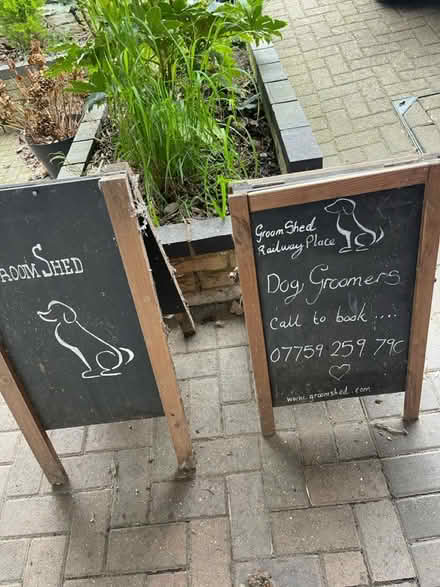 ROOM SHED
GroomShed
Railway Place
Dog Groomers
Call to book ....
07759 259 790
www.groomshed.com